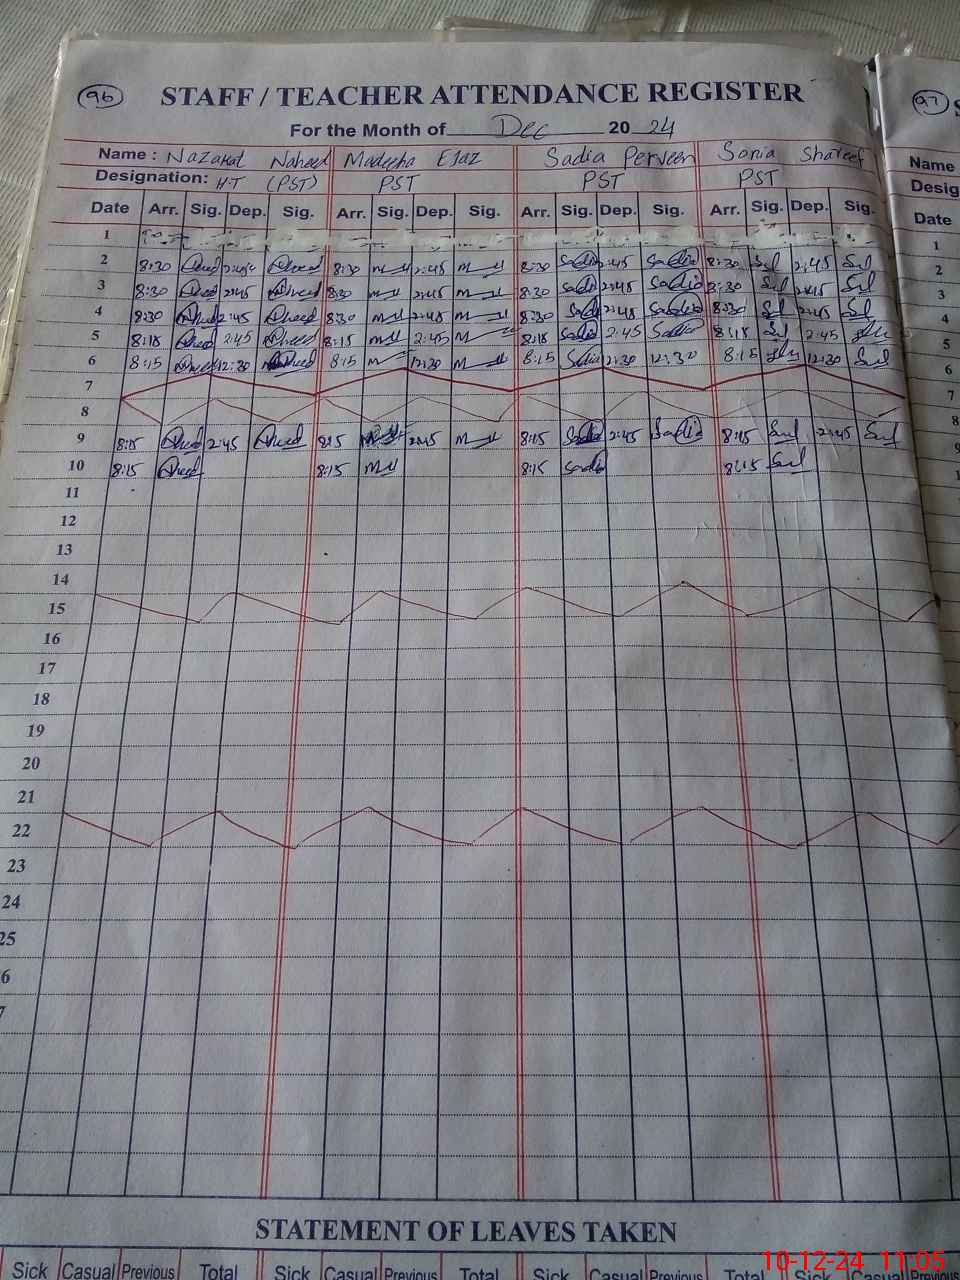 96
97
STAFF / TEACHER ATTENDANCE REGISTER
For the Month of Dec 20 24
Name : Nazakat Naheed Madeeha Ejaz Sadia Perveen Sania Shareef
Name
Designation: HT (PST) PST PST PST
Desig
Date Arr. Sig. Dep. Sig. Arr. Sig. Dep. Sig. Arr. Sig. Dep. Sig. Arr. Sig. Dep. Sig.
Date
1 1
2 8:30 2:45 8:30 2:45 8:30 Sadia 2:45 Sadia 8:30 2:45 2
3 8:30 2:45 8:30 2:45 8:30 Sadia 2:45 Sadia 8:30 2:45 3
4 8:30 2:45 8:30 2:45 8:30 Sadia 2:45 Sadia 8:30 2:45 4
5 8:15 2:45 8:15 2:45 8:15 Sadia 2:45 Sadia 8:15 2:45 5
6 8:15 12:30 8:15 12:30 8:15 Sadia 12:30 12:30 8:15 12:30 6
7 7
8 8
9 8:15 2:45 8:15 2:45 8:15 Sadia 2:45 Sadia 8:15 2:45
10 8:15 8:15 8:15 Sadia 8:15
11
12
13
14
15
16
17
18
19
20
21
22
23
24
25
6
7
STATEMENT OF LEAVES TAKEN
Sick Casual Previous Total Sick Casual Previous Total Sick Casual Previous Total Sick Casual Previous
10-12-24 11:05